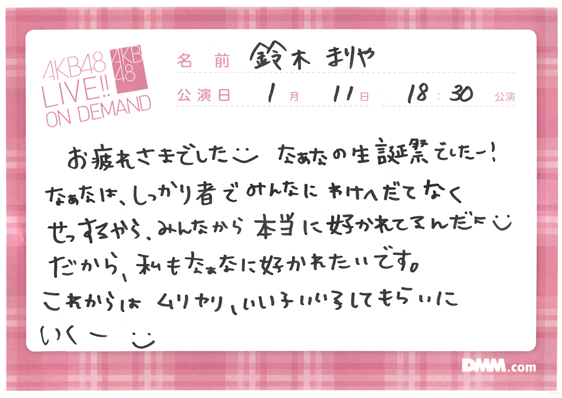 AKB48
LIVE!!
ON DEMAND
AKB
48
名前 鈴木 まりや
公演日 1月 11日 18:30 公演
お疲れさまでした なぁなの生誕祭でしたー!
なぁなは、しっかり者でみんなにわけへだてなく
せっするから、みんなから本当に好かれてるんだよ
だから、私もなぁなに好かれたいです。
これからは ムリヤリ、いい子いい子してもらいに
いくー
DMM.com